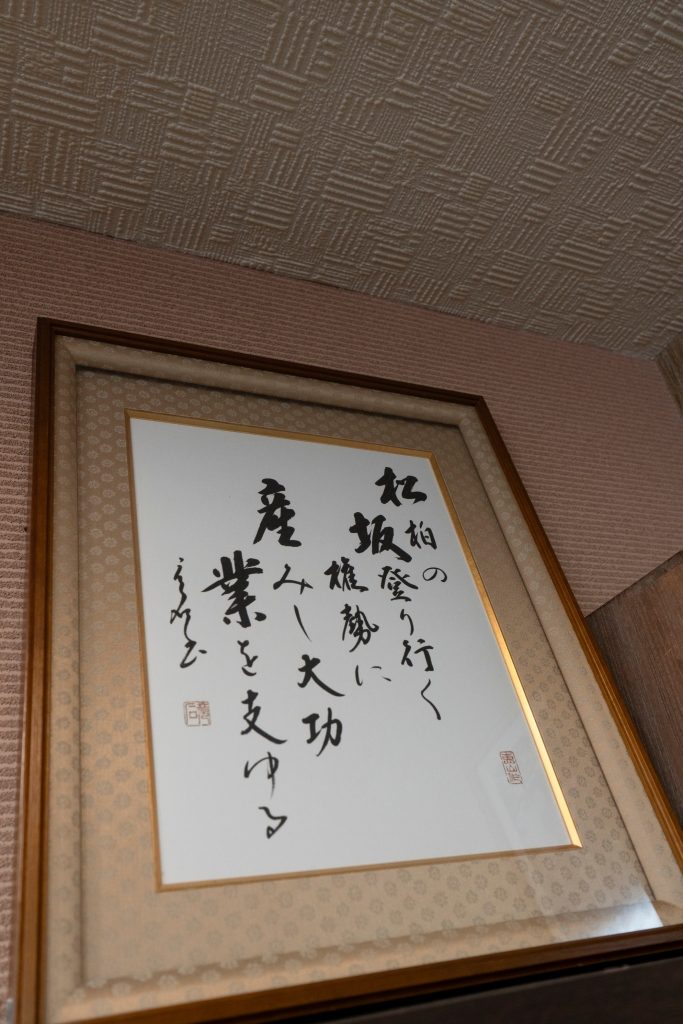 松柏の
坂登り行く
権勢に
産みし大功
業を支ゆる